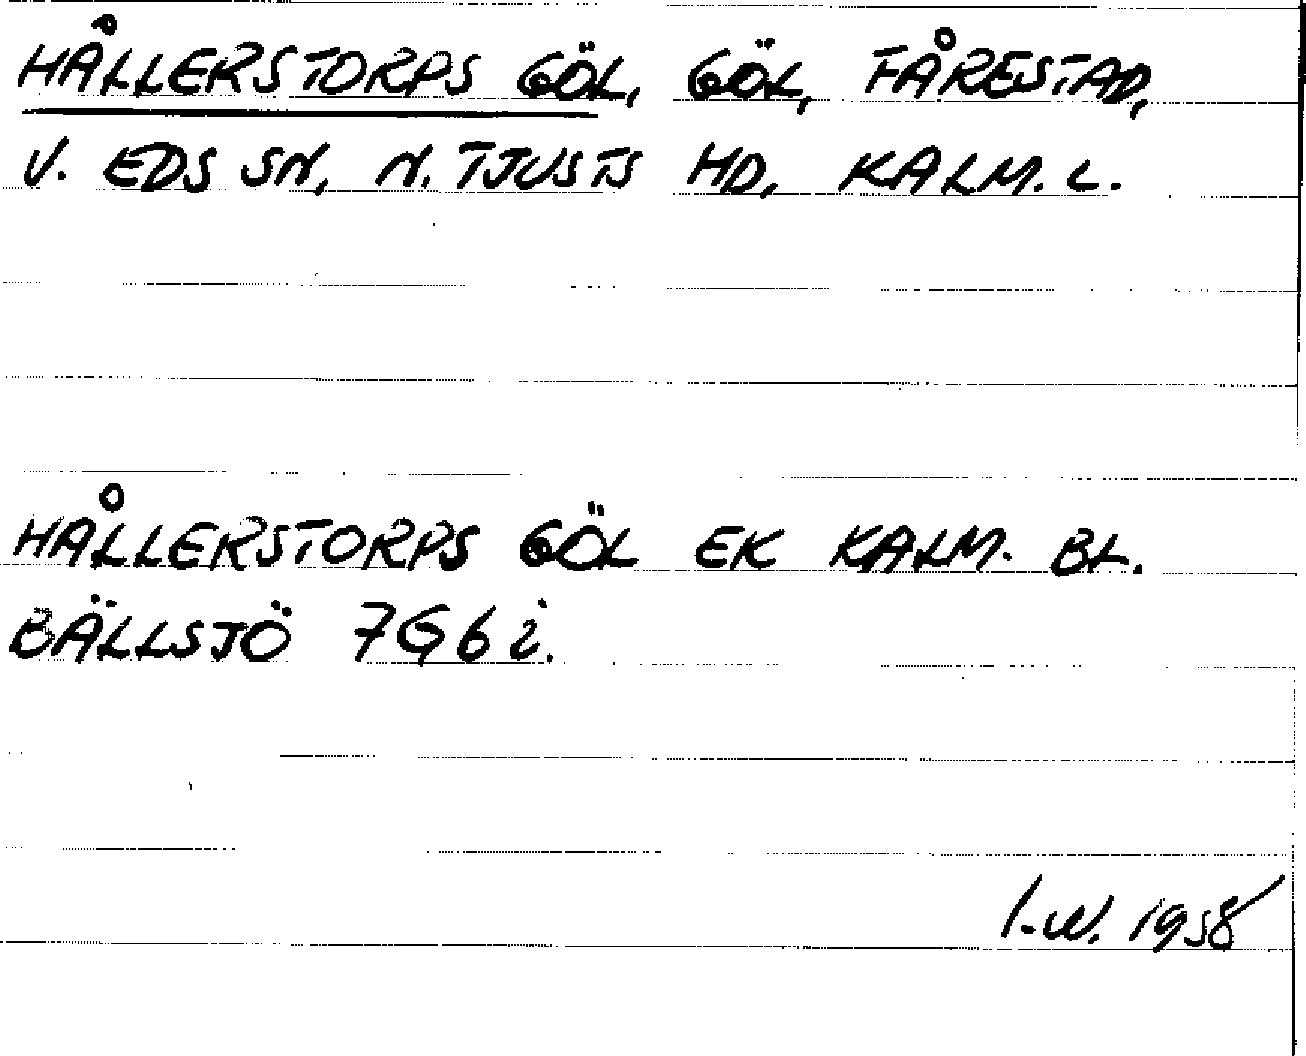 HÅLLERSTORPS GÖL, GÖL, FÅRESTAD,
V. EDS SN, N. TJUSTS HD, KALM. L.
HÅLLERSTORPS GÖL EK KALM. BL.
BÄLLSJÖ 7G6i.
I.W. 1958